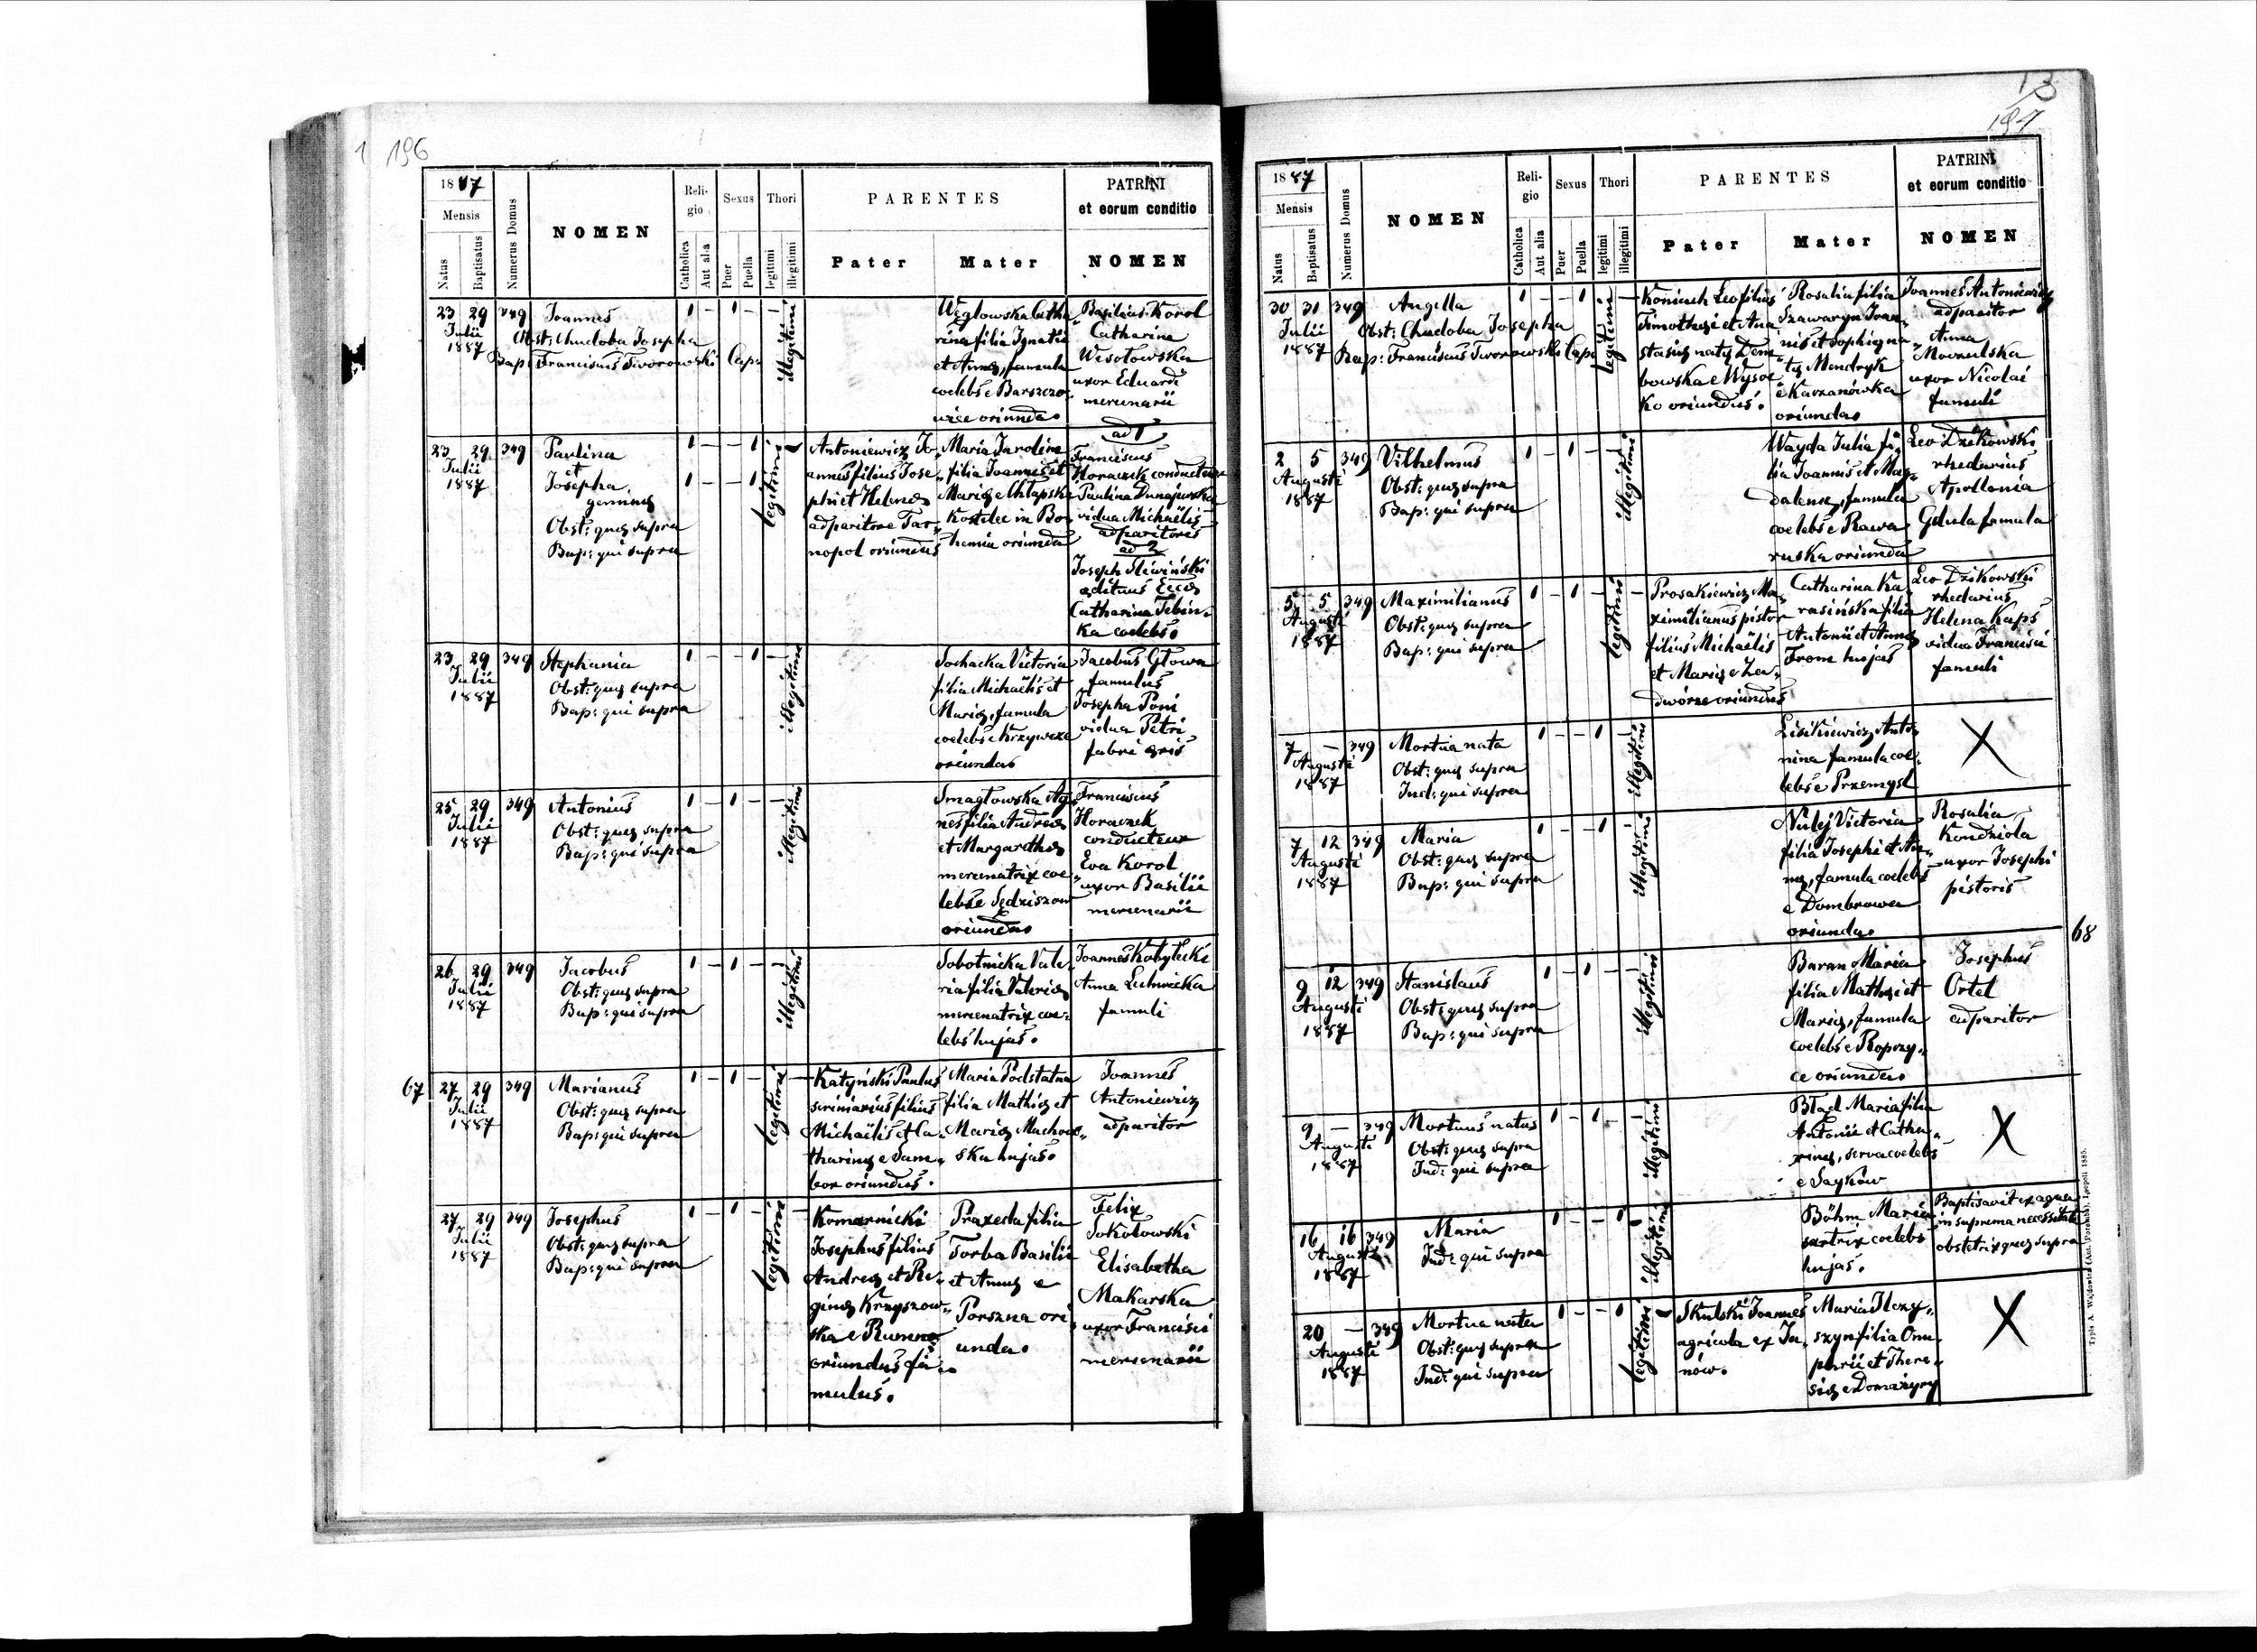 196
1887
Mensis
Natus
Baptisatus
Numerus Domus
NOMEN
Religio
Catholica
Aut alia
Sexus
Puer
Puella
Thori
legitimi
illegitimi
PARENTES
Pater
Mater
PATRINI
et eorum conditio
NOMEN
23 29 349 Joannes 1 - 1 - -
Julii
1887
Obst: Chudoba Josepha
Bap: Franciscus Tworowski Cap:
illegitimi
Węglowska Catha
rina filia Ignatii
et Annę, famula
coelebs e Barszczo-
wice oriunda.
Basilius Korol
Catharina
Wesołowska
uxor Eduardi
mercenarii
23 29 349 Paulina 1 - - 1
Julii
1887
et
Josepha 1 - - 1
geminę
Obst: quę supra
Bap: qui supra
legitimi
Antoniewicz Jo-
annes filius Jose-
phi et Helenę
adparitor e Tar-
nopol oriundus
Maria Jarolim
filia Joannis et
Marię e Chlapska
Kostelec in Bo-
hemia oriunda
ad 1
Franciscus
Horaczek conducteur
Paulina Dunajewska
vidua Michaëlis
adparitoris
ad 2
Joseph Śliwiński
ędituus Eccę
Catharina Tebin-
ka coelebs.
23 29 349 Stephania 1 - - 1 -
Julii
1887
Obst: quę supra
Bap: qui supra
illegitimi
Sochacka Victoria
filia Michaëlis et
Marię, famula
coelebs e Krzywcze
oriunda
Jacobus Głowa
famulus
Josepha Poni
vidua Petri
fabri ęris
25 29 349 Antonius 1 - 1 - -
Julii
1887
Obst: quę supra
Bap: qui supra
illegitimi
Smagłowska Ag-
nes filia Andreę
et Margarethę
mercenatrix coe-
lebs e Sędziszow
oriunda
Franciscus
Horaczek
conducteur
Eva Korol
uxor Basilii
mercenarii
26 29 349 Jacobus 1 - 1 - -
Julii
1887
Obst: quę supra
Bap: qui supra
illegitimi
Sobotnicka Vale-
ria filia Valerię
mercenatrix coe-
lebs hujas.
Joannes Kobyłecki
Anna
famuli
67 27 29 349 Marianus 1 - 1 - -
Julii
1887
Obst: quę supra
Bap: qui supra
legitimi
Katyński Paulus
scriniarius filius
Michaëlis et Ca-
tharinę e Sam-
bor oriundus.
Maria Podstatna
filia Mathię et
Marię Machow-
ska hujas.
Joannes
Antoniewicz
adparitor
27 29 349 Josephus 1 - 1 - -
Julii
1887
Obst: quę supra
Bap: qui supra
legitimi
Komarnicki
Josephus filius
Andreę et Re-
ginę Krzyszow-
ska e Rumno
oriundus fa-
mulus.
Praxeda filia
Torba Basilii
et Annę e
Porszna ori
unda.
Felix
Sokołowski
Elisabetha
Makarska
uxor Francisci
mercenarii
13
197
1887
Mensis
Natus
Baptisatus
Numerus Domus
NOMEN
Religio
Catholica
Aut alia
Sexus
Puer
Puella
Thori
legitimi
illegitimi
PARENTES
Pater
Mater
PATRINI
et eorum conditio
NOMEN
30 31 349 Angella 1 - - 1 -
Julii
1887
Obst: Chudoba Josepha
Bap: Franciscus Tworowski Cap:
legitimi
Koniuch Leo filius
Timothęi et Ana
stasię natę Dem-
bowska e Wysoc
ko oriundus.
Rosalia filia
Szawaryn Joan-
nis et Sophię na-
tę Mendryk
e Kaczanówka
oriunda
Joannes Antoniewicz
adparitor
Anna
Moczulska
uxor Nicolai
famuli
2 5 349 Vilhelmus 1 - 1 - -
Augusti
1887
Obst: quę supra
Bap: qui supra
illegitimi
Wayda Julia fi-
lia Joannis et Mag-
dalenę, famula
coelebs e Rawa
ruska oriunda
Leo Dzikowski
rhedarius
Apollonia
Gdula famula
5 5 349 Maximilianus 1 - 1 - -
Augusti
1887
Obst: quę supra
Bap: qui supra
legitimi
Prosakiewicz Ma-
ximilianus pistor
filius Michaëlis
et Marię e Za-
dwórze oriundus
Catharina Ka-
rasińska filia
Antonii et Annę
From hujas
Leo Dzikowski
rhedarius
Helena Kaps
vidua Francisci
famuli
7 - 349 Mortua nata 1 - - 1 -
Augusti
1887
Obst: quę supra
Ind: qui supra
illegitimi
Lisikiewicz Anto-
nina famula coe-
lebs e Przemysl
X
7 12 349 Maria 1 - - 1 -
Augusti
1887
Obst: quę supra
Bap: qui supra
illegitimi
Nulej Victoria
filia Josephi et An-
nę, famula coelebs
e Dombrowa
oriunda
Rosalia
Kondziola
uxor Josephi
pistoris
68
9 12 349 Stanislaus 1 - 1 - -
Augusti
1887
Obst: quę supra
Bap: qui supra
illegitimi
Baran Maria
filia Mathęi et
Marię, famula
coelebs e Ropczy-
ce oriunda
Josephus
Ortel
adparitor
9 - 349 Mortuus natus 1 - 1 - -
Augusti
1887
Obst: quę supra
Ind: qui supra
illegitimi
Bład Maria filia
Antonii et Catha-
rinę, serva coelebs
e Saykow
X
16 16 349 Maria 1 - - 1
Augusti
1887
Ind: qui supra
illegitimi
Böhm Maria
sartrix coelebs
hujas.
Baptisavit ex aqua
in suprema necessitate
obstetrix quę supra
20 - 349 Mortua nata 1 - - 1
Augusti
1887
Obst: quę supra
Ind: qui supra
legitimi
Skulski Joannes
agricola ex Ja-
nów.
Maria Ilczy-
szyn filia Onu-
phrii et There-
się e Domażyry
X
Typis A. Wajdowicz (Ant. Poremba), Leopoli 1885.